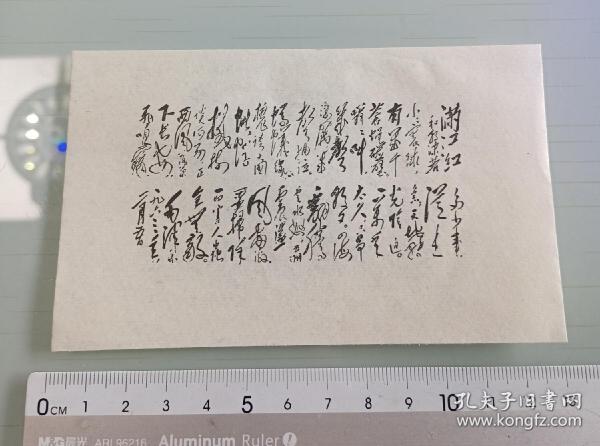 满江红
和郭沫若
小小寰球,
有几个
苍蝇碰壁
嗡嗡叫
几声
凄厉几
声抽泣
蚂蚁缘
槐夸大国
蚍蜉
撼树
谈何易正
西风落叶
下长安
飞鸣镝
多少事
从来
急天地转
光阴迫
一万年
太久只争
朝夕四海
翻腾
云水怒五洲
震荡
风雷激
要扫除
一切害人虫
全无敌。
毛泽东
一九六三年
二月五日
0CM 1 2 3 4 5 6 7 8 9 10
M&G晨光 ARL96216 Aluminum Ruler
孔夫子旧书网
kongfz.com